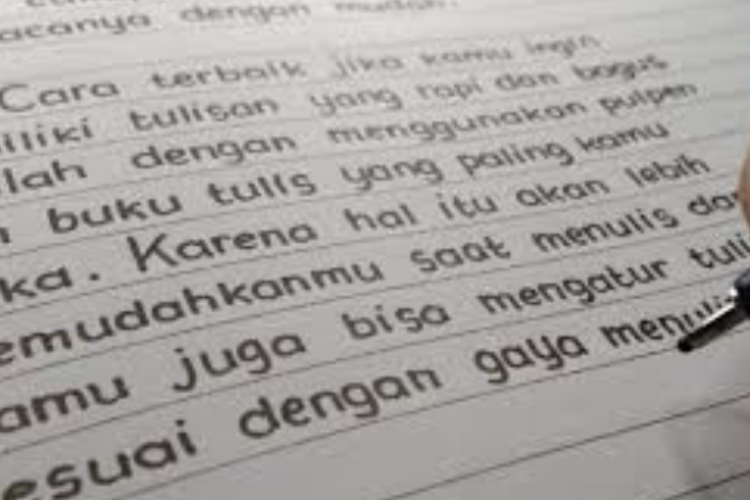 acanya dengan mudah.
Cara terbaik jika kamu ingin
iliki tulisan yang rapi dan bagus
lah dengan menggunakan pulpen
buku tulis yang paling kamu
ka. Karena hal itu akan lebih
emudahkanmu saat menulis dan
amu juga bisa mengatur tuli
esuai dengan gaya menuli